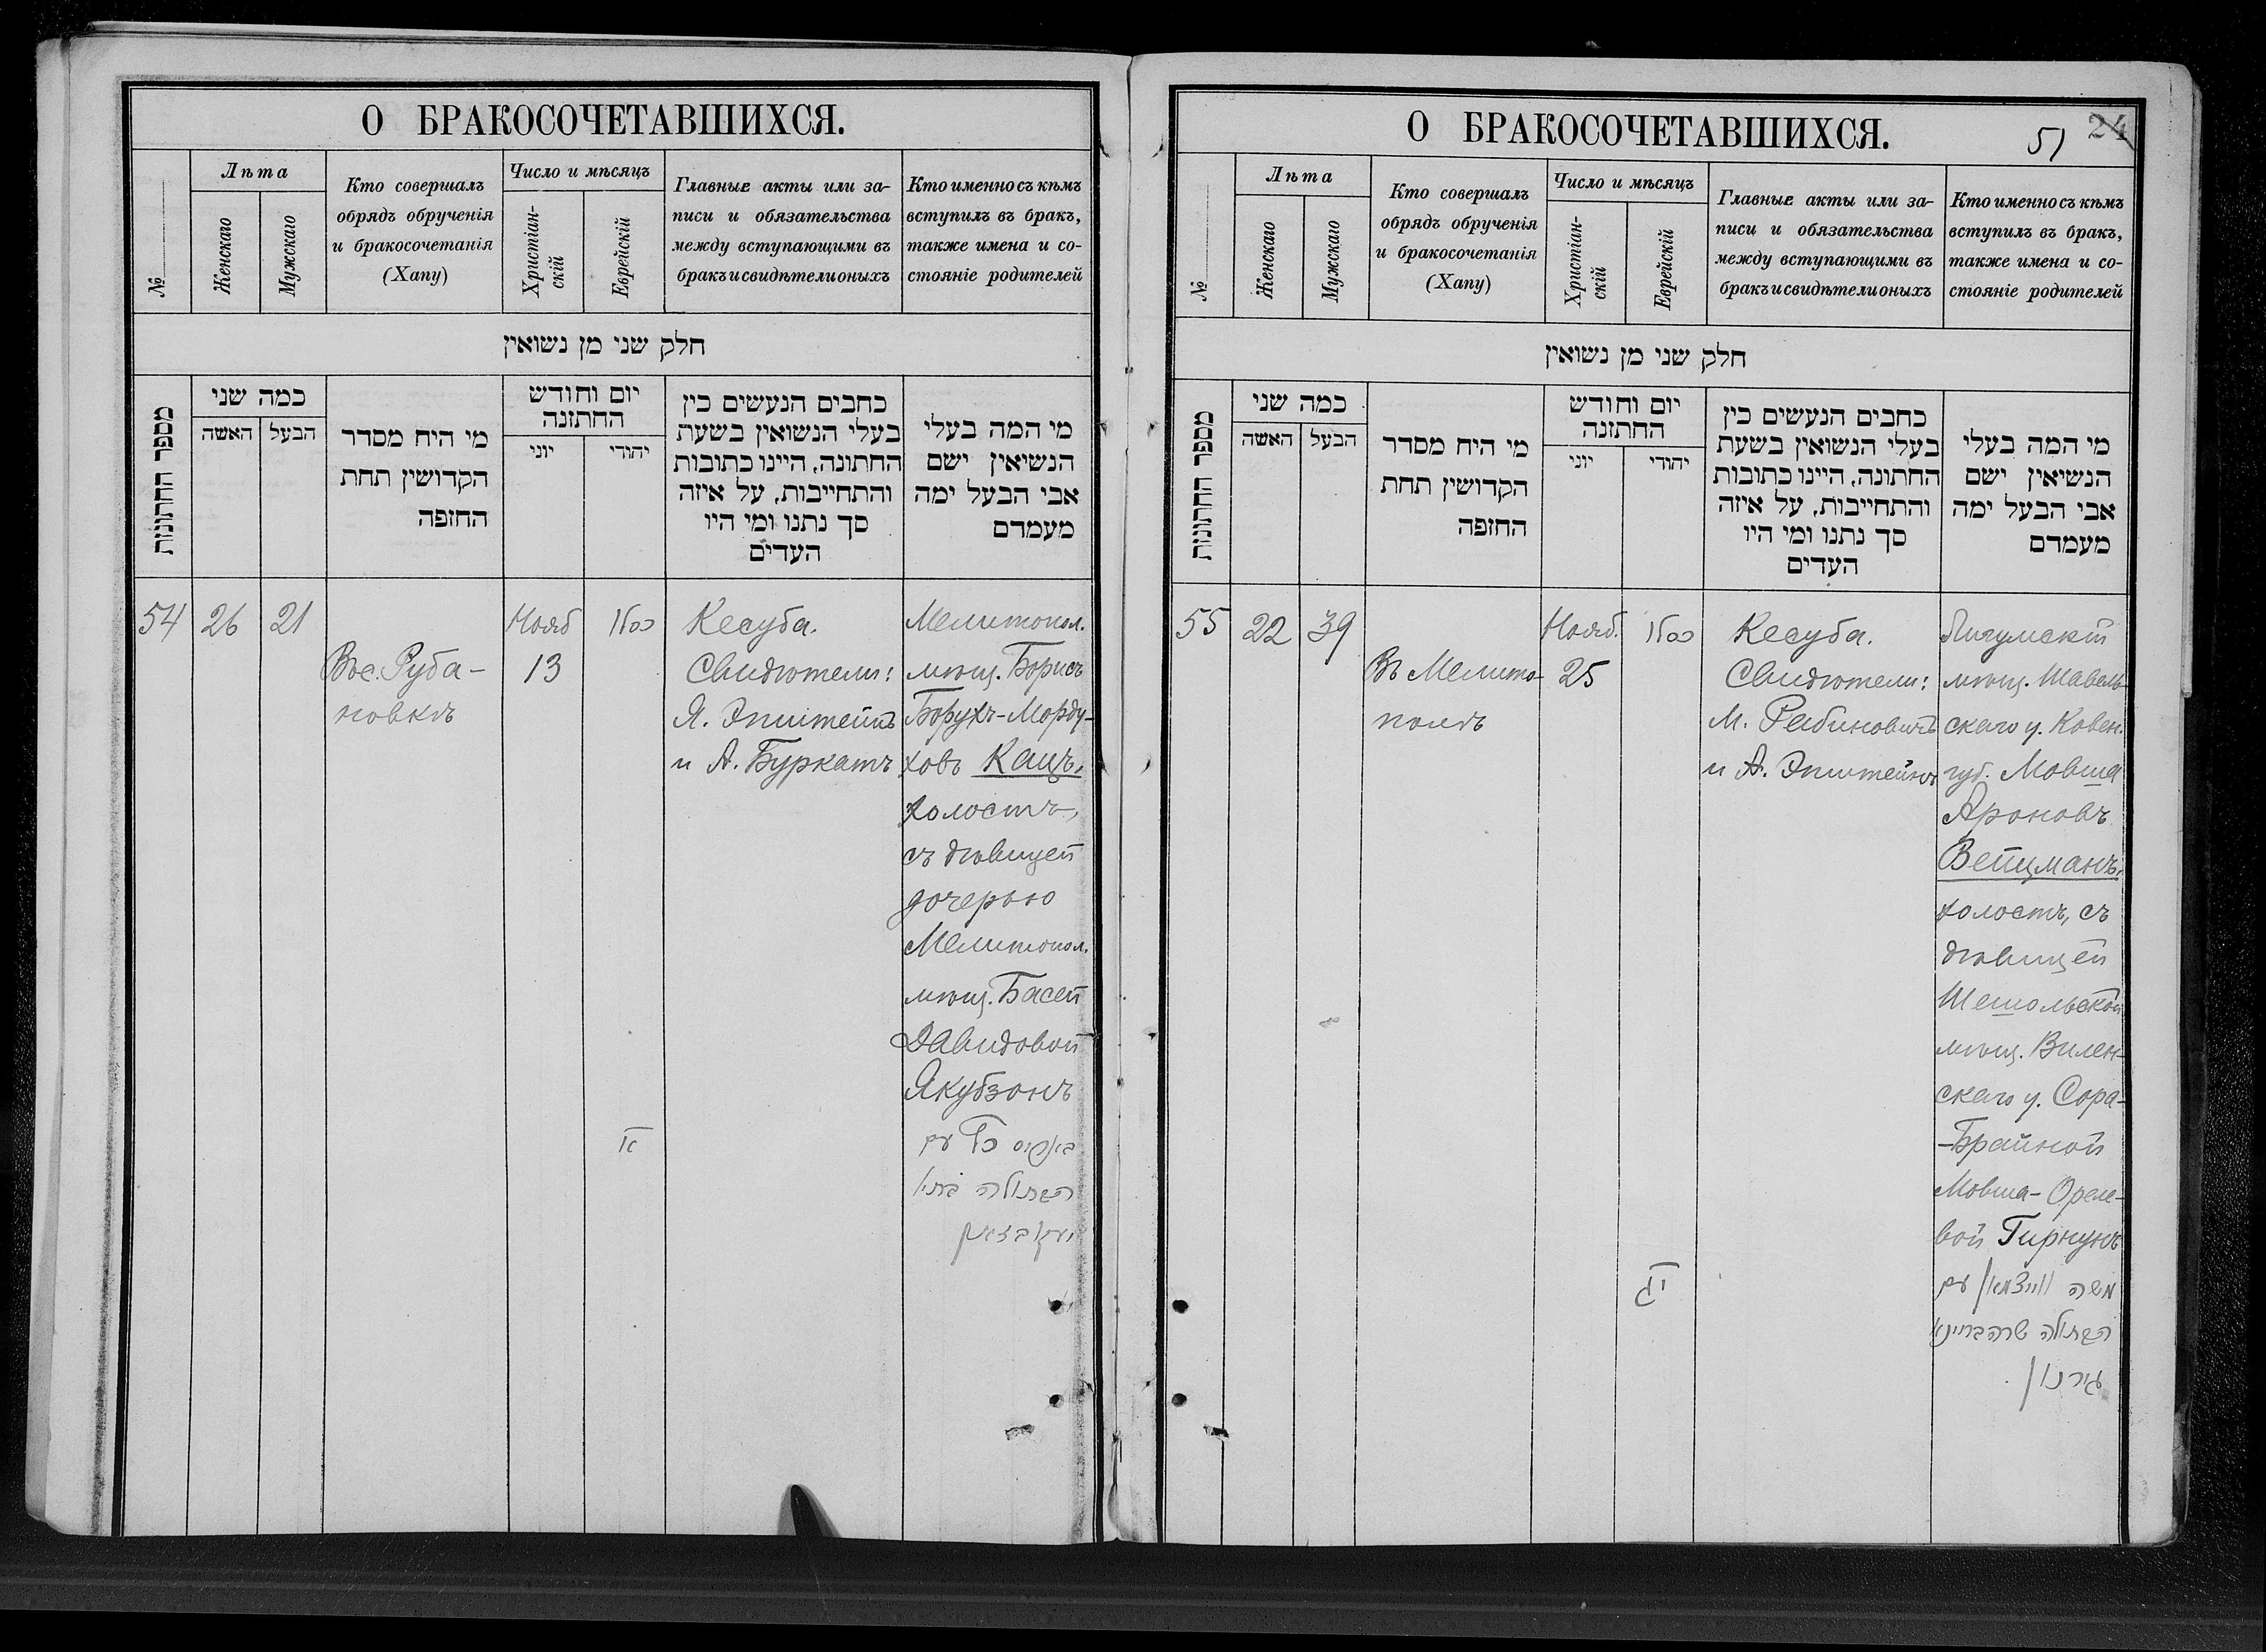 О БРАКОСОЧЕТАВШИХСЯ.
№
Лѣта
Женскаго
Мужскаго
Кто совершалъ
обрядъ обрученія
и бракосочетанія
(Хапу)
Число и мѣсяцъ
Христіан-
скій
Еврейскій
Главные акты или за-
писи и обязательства
между вступающими въ
бракъ и свидѣтели оныхъ
Кто именно съ кѣмъ
вступилъ въ бракъ,
также имена и со-
стояніе родителей
חלק שני מן נשואין
מספר החתונות
כמה שני
האשה
הבעל
מי היח מסדר
הקדושין תחת
החזפה
יום וחודש
החתזנה
יוני
יהודי
כחבים הנעשים כין
בעלי הנשואין בשעת
החתונה, היינו כתובות
והתחייבות, על איזה
סך נתנו ומי היו
העדים
מי המה בעלי
הנשיאין ישם
אבי הבעל ימה
מעמדם
54
26
21
Въ с. Руба-
новкѣ
Нояб
13
כסלו
יא
Кесуба.
Свидѣтели:
Я. Эпштейнъ
и А. Буркатъ
Мелитопол.
мѣщ. Борисъ
Борухъ-Морду-
ховъ Кацъ,
холостъ,
съ дѣвицей
дочерью
Мелитопол.
мѣщ. Басей
Давидовой
Якубзонъ
כץ עם
הבתולה
О БРАКОСОЧЕТАВШИХСЯ.
51
24
№
Лѣта
Женскаго
Мужскаго
Кто совершалъ
обрядъ обрученія
и бракосочетанія
(Хапу)
Число и мѣсяцъ
Христіан-
скій
Еврейскій
Главные акты или за-
писи и обязательства
между вступающими въ
бракъ и свидѣтели оныхъ
Кто именно съ кѣмъ
вступилъ въ бракъ,
также имена и со-
стояніе родителей
חלק שני מן נשואין
מספר החתונות
כמה שני
האשה
הבעל
מי היח מסדר
הקדושין תחת
החזפה
יום וחודש
החתזנה
יוני
יהודי
כחבים הנעשים כין
בעלי הנשואין בשעת
החתונה, היינו כתובות
והתחייבות, על איזה
סך נתנו ומי היו
העדים
מי המה בעלי
הנשיאין ישם
אבי הבעל ימה
מעמדם
55
22
39
Въ Мелито-
полѣ
Нояб.
25
כסלו
Кесуба.
Свидѣтели:
М. Рабиновичъ
и А. Эпштейнъ
Лигумскій
мѣщ. Шавель-
скаго у. Ковен.
губ. Мовша
Ароновъ
Вейцманъ,
холостъ, съ
дѣвицей
Шешольской
мѣщ. Вилен-
скаго у. Сора-
-Брайной
Мовша-Ореле-
вой Гирнунъ
משה ווייצמאן עם
הבתולה שרה בריינא
גירנון